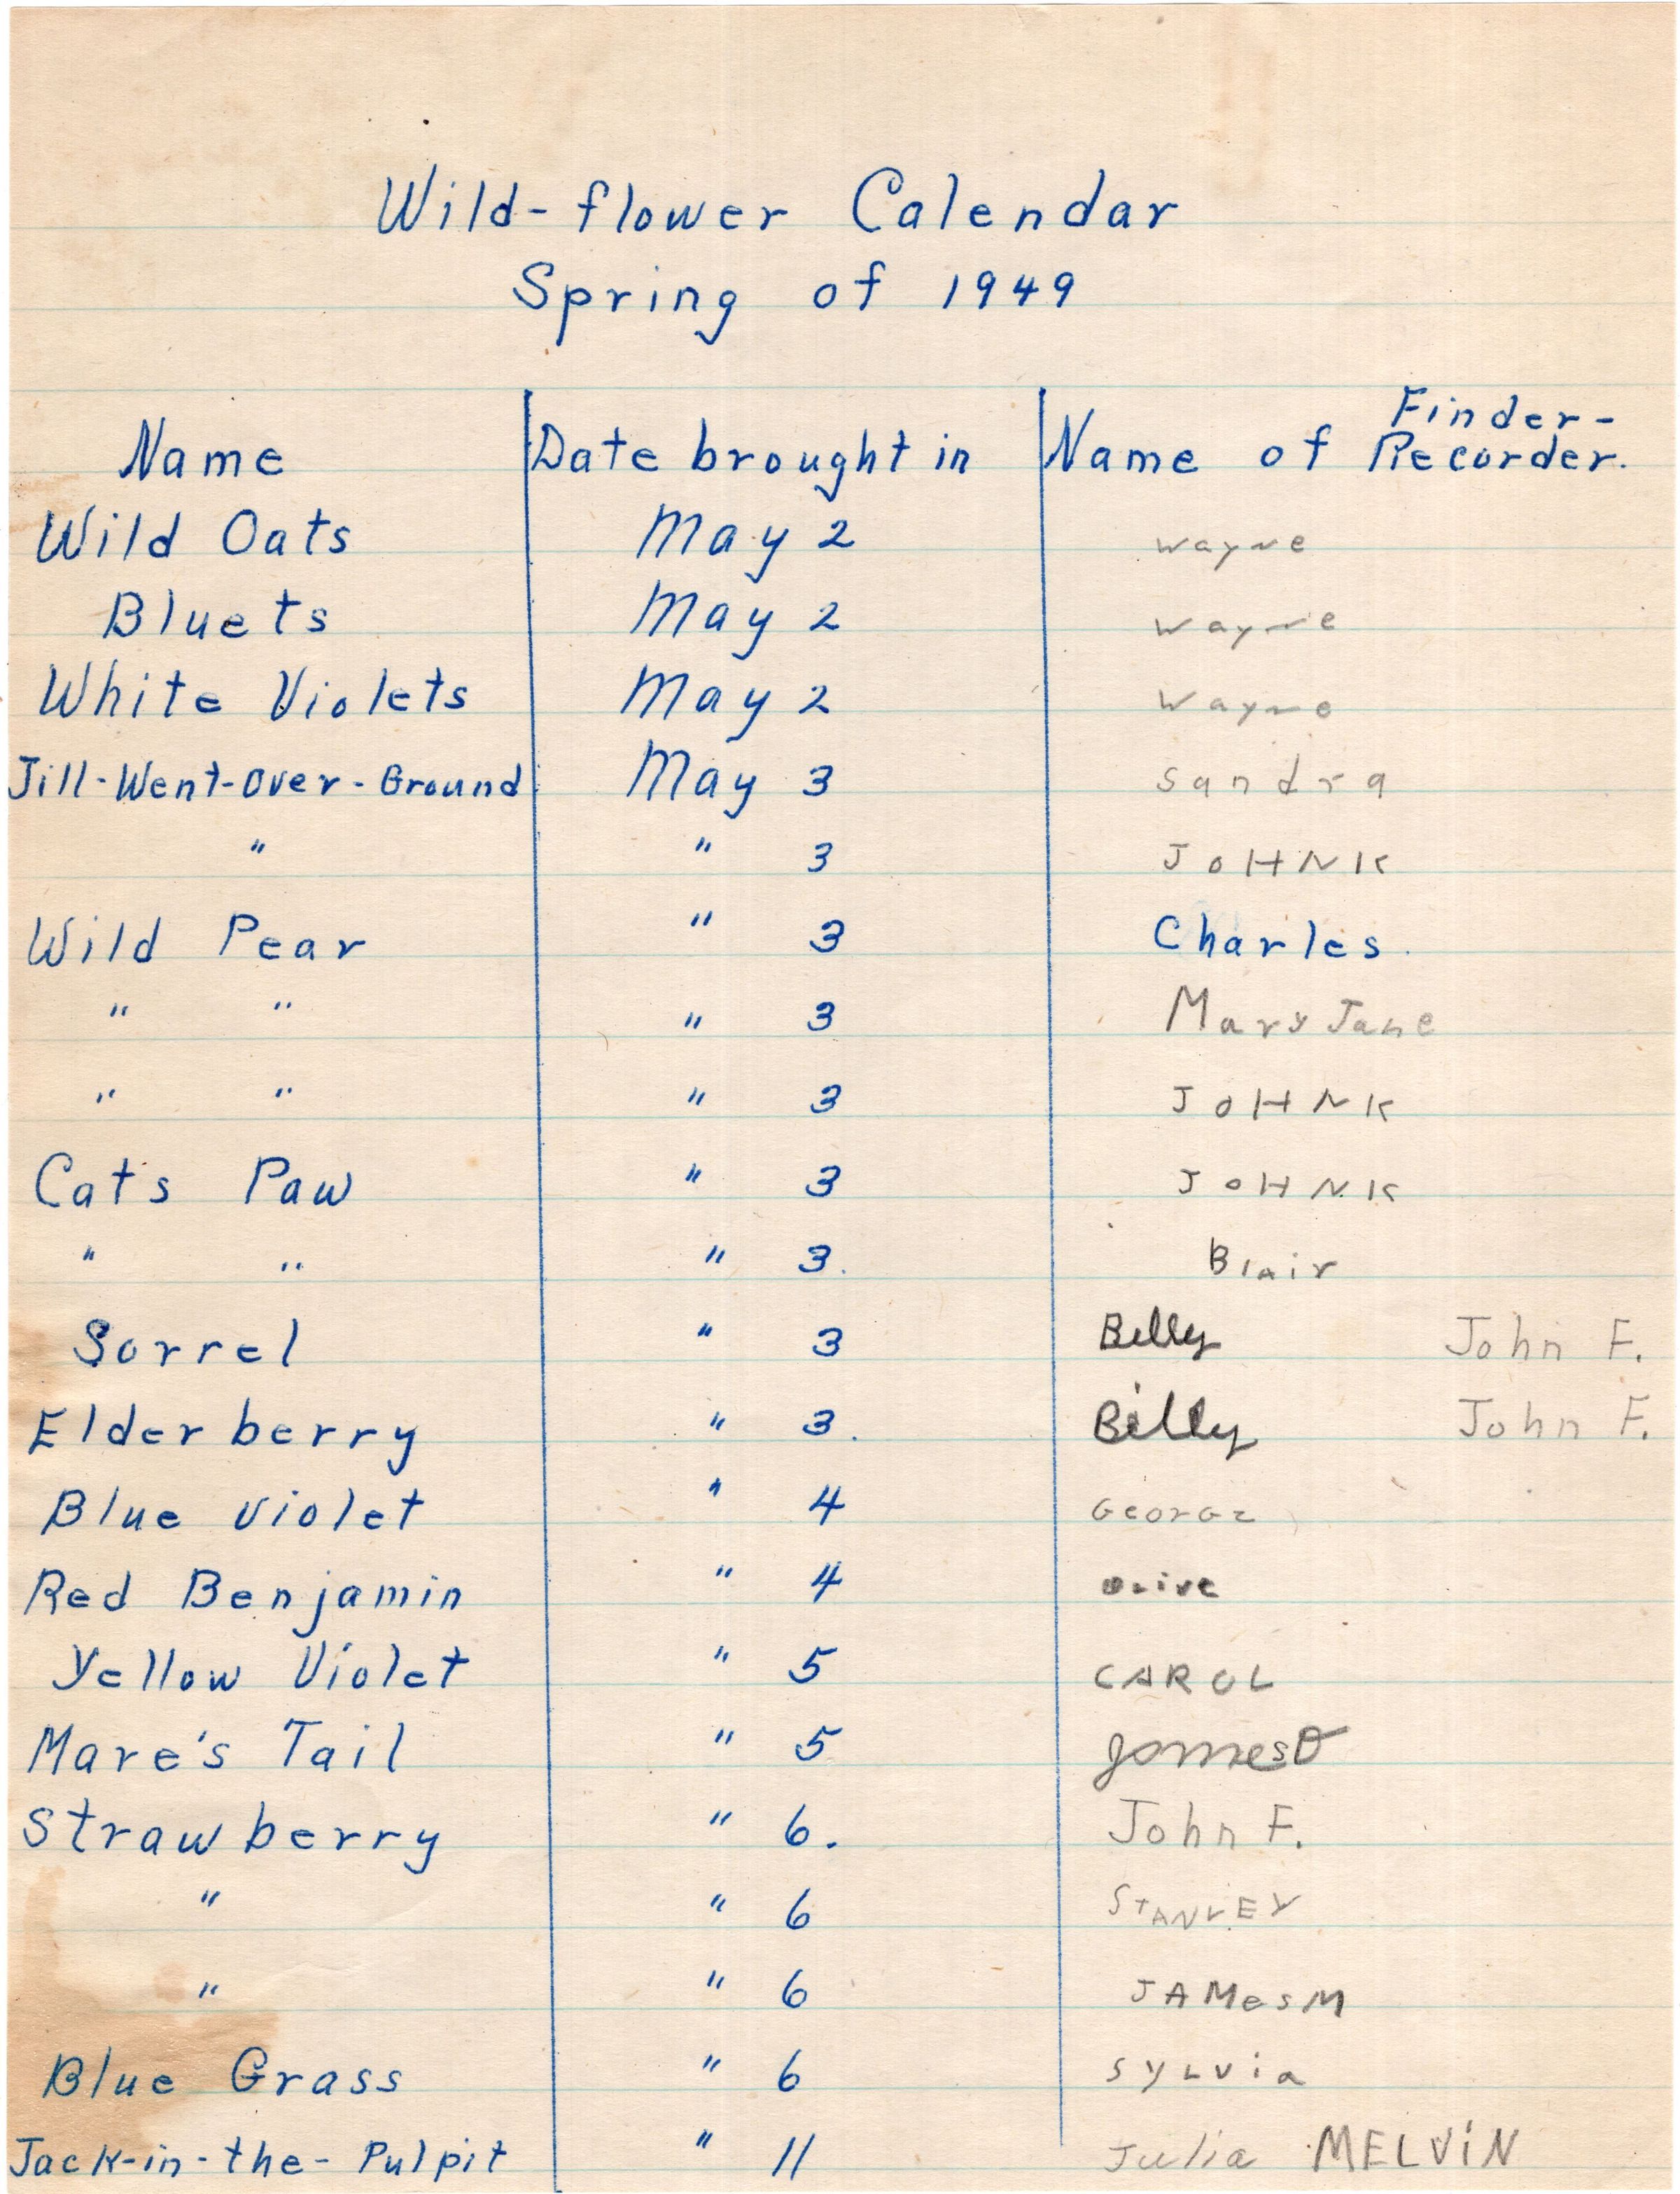 Wild-flower Calendar
Spring of 1949
Name Date brought in Name of Finder-
Recorder.
Wild Oats May 2 Wayne
Bluets May 2 Wayne
White Violets May 2 Wayne
Jill-Went-Over-Ground May 3 Sandra
" " 3 JOHN K
Wild Pear " 3 Charles.
" " " 3 Mary Jane
" " " 3 JOHN K
Cats Paw " 3 JOHN K
" " " 3. Blair
Sorrel " 3 Billy John F.
Elderberry " 3. Billy John F.
Blue Violet " 4 George
Red Benjamin " 4 Olive
Yellow Violet " 5 CAROL
Mare's Tail " 5 James D
Strawberry " 6. John F.
" " 6 STANLEY
" " 6 JAMes M
Blue Grass " 6 SYLVia
Jack-in-the-Pulpit " 11 Julia MELViN